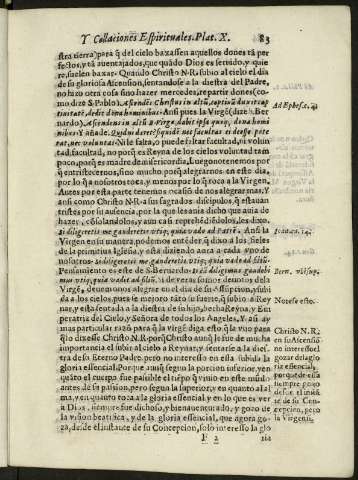 Y Collaciones Espirituales. Plat. X. 83
stra tierra) para q̃ del cielo baxassen aquellos dones tã per
fectos, y tã auentajados, que quãdo Dios es seruido, y quie
re, suelen baxar. Quãdo Christo N.R. subio al cielo el dia
de su gloriosa Ascension, sentandose a la diestra del Padre,
no hizo otra cosa sino hazer mercedes, repartir dones (co-
mo dize S. Pablo). Ascendẽs Christus in altũ, captiuã duxit cap
tiuitatẽ, dedit dona hominibus. Ansi pues la Virgẽ (dize S. Ber
nardo). Ascendens in altũ
Ad Ephes. 4.
nibus: Y añade.
nec voluntas? Ni le falta, ni puede faltar facultad, ni volun
tad, facultad, no porq̃ es Reyna de los cielos voluntad tam
poco, porq̃ es madre de misericordia. Luego no tenemos por
q̃ entristecernos, sino mucho porq̃ alegrarnos en este dia,
por lo q̃ a nosotros toca, y menos por lo q̃ toca a la Virgen,
Antes por esta parte tenemos ocasiõ de mas alegrarnos. Y
ansi como Christo N.R. a sus sagrados discipulos, q̃ estauan
tristes por su ausencia, por la que le auia dicho que auia de
hazer, cõsolandolos, y aun casi reprehẽdiẽdolos, les dixo.
Si diligeretis me gauderetis vtiq; quia vado ad Patrẽ. Ansi la
Ioan. 14.
Virgen en su manera, podemos entẽder, q̃ dixo a los fieles
de la primitiua Iglesia, y està diziendo aora a cada vno de
nosotros. Si diligeretis me gauderetis vtiq; quia vado ad filiũ.
Pensamiento es este de S. Bernardo.
Bern. vbi sup.
Virgẽ, deuemos alegrar en el dia de su Assumpcion, y subi
da a los cielos, pues se mejoro tãto su suerte, q̃ subio a Rey
nar, y esta sentada a la diestra de su hijo, hecha Reyna, y Em
peratriz del Cielo, y Señora de todos los Angeles. Y aũ ay
Notese esto.
mas particular razõ para q̃ la Virgẽ diga esto q̃ la vuo para
q̃ lo dixesse Christo N.R. porq̃ Christo aunq̃ le fue de mucha
importancia el subir al cielo a Reynar, y sentarse a la dies-
tra de su Eterno Padre, pero no interesso en esta subida la
gloria essencial. Porque aunq̃ segun la porcion inferior, y en
quãto el cuerpo fue passible el tiẽpo q̃ viuio en este mũdo
antes de su passion, pero segun la superior, y en quanto al al
ma, y en quanto toca a la gloria essencial y en lo que es ver
a Dios, siempre fue dichoso, y bienauenturado, y gozo de
la vision beatifica, y de la gloria essencial, que agora go-
za, desde el instante de su Concepcion, solo interesso la glo
Christo N.R.
en su Ascensiõ
no interesso el
gozar de la glo
ria essencial,
porque de essa
siempre gozo
desde el instã
te de su Con-
cepcion, pero
la Virgen si.
F 2